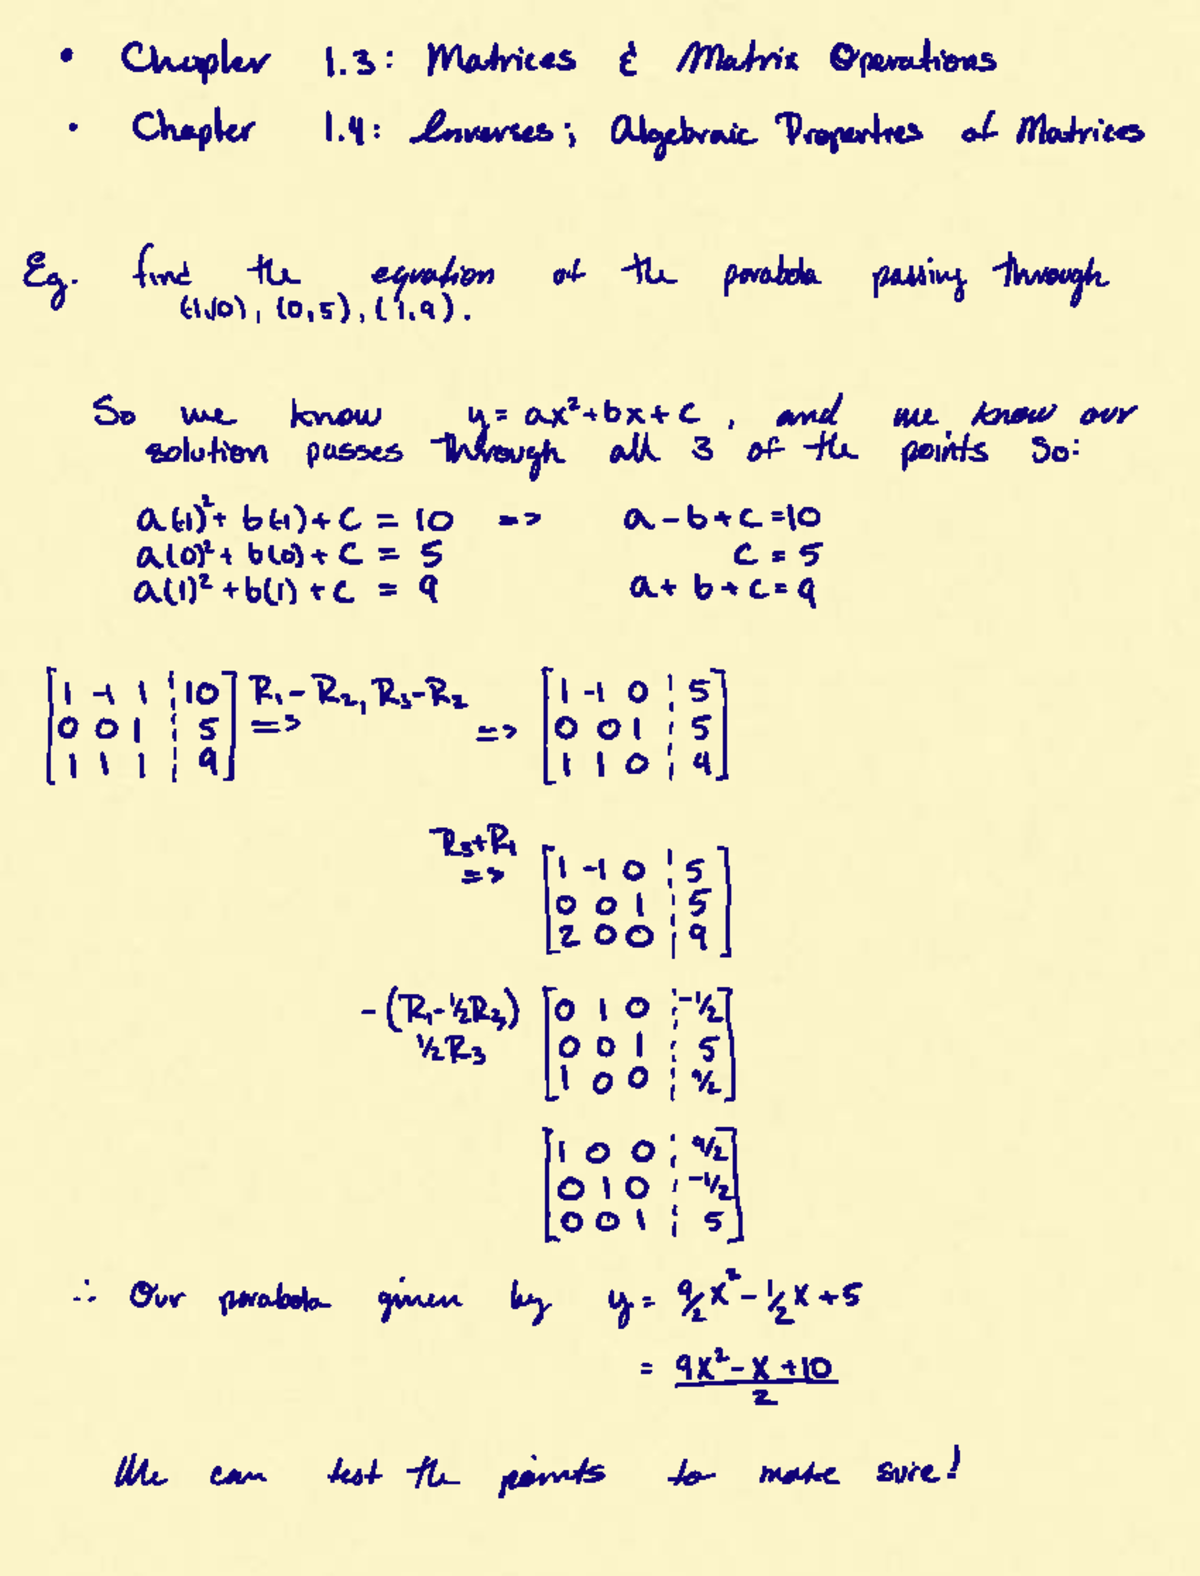 • Chapter 1.3: Matrices & Matrix Operations
• Chapter 1.4: Inverses; Algebraic Properties of Matrices
Eg. find the equation of the parabola passing through
(-1,10), (0,5), (1,9).
So we know y = ax²+bx+c, and we know our
solution passes through all 3 of the points so:
a(-1)²+ b(-1)+c = 10 => a-b+c=10
a(0)²+ b(0)+c = 5 c = 5
a(1)²+b(1)+c = 9 a+b+c=9
[1 -1 1 ¦ 10] R₁-R₂, R₃-R₂ [1 -1 0 ¦ 5]
[0 0 1 ¦ 5] => => [0 0 1 ¦ 5]
[1 1 1 ¦ 9] [1 1 0 ¦ 4]
R₃+R₁ [1 -1 0 ¦ 5]
=> [0 0 1 ¦ 5]
[2 0 0 ¦ 9]
-(R₁-½R₃) [0 1 0 ¦ -½]
½R₃ [0 0 1 ¦ 5]
[1 0 0 ¦ 9/2]
[1 0 0 ¦ 9/2]
[0 1 0 ¦ -½]
[0 0 1 ¦ 5]
∴ Our parabola given by y = 9/2x²-½x+5
= (9x²-x+10)/2
We can test the points to make sure!